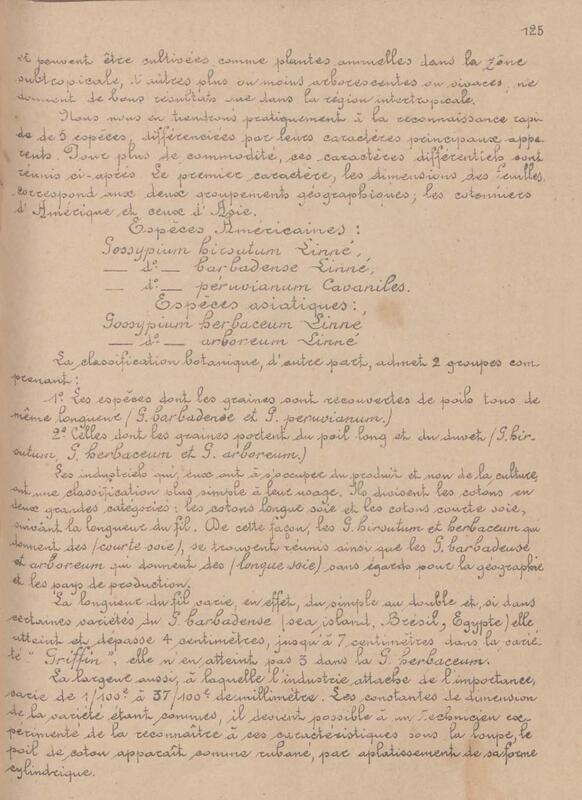 125
et peuvent être cultivées comme plantes annuelles dans la zône
subtropicale, d'autres plus ou moins arborescentes ou vivaces, ne
donnent de bons résultats que dans la région intertropicale.
Nous nous en tiendrons pratiquement à la reconnaissance rapi-
de de 5 espèces, différenciées par leurs caractères principaux appa-
rents. Pour plus de commodité, ces caractères différentiels sont
réunis ci-après. Le premier caractère, les dimensions des feuilles
correspond aux deux groupements géographiques; les cotonniers
d'Amérique et ceux d'Asie.
Espèces Américaines:
Gossypium hirsutum Linné,
— d°— barbadense Linné,
— d°— péruvianum Cavaniles.
Espèces asiatiques:
Gossypium herbaceum Linné
— d°— arboreum Linné
La classification botanique, d'autre part, admet 2 groupes com
prenant:
1° Les espèces dont les graines sont recouvertes de poils tous de
même longueur (G. barbadense et G. peruvianum.)
2° Celles dont les graines portent du poil long et du duvet (G. hir-
sutum, G. herbaceum et G. arboreum.)
Les industriels qui, eux ont à s'occuper du produit et non de la culture,
ont une classification plus simple à leur usage. Ils divisent les cotons en
deux grandes catégories: les cotons longue soie et les cotons courte soie,
suivant la longueur du fil. De cette façon, les G. hirsutum et herbaceum qui
donnent des (courte soie), se trouvent réunis ainsi que les G. barbadense
et arboreum qui donnent des (longue soie) sans égards pour la géographie
et les pays de production.
La longueur du fil varie, en effet, du simple au double et, si dans
certaines variétés du G. barbadense (sea island, Brésil, Egypte) elle
atteint et dépasse 4 centimètres, jusqu'à 7 centimètres dans la varié
té "Griffin", elle n'en atteint pas 3 dans la G. herbaceum.
La largeur aussi, à laquelle l'industrie attache de l'importance,
varie de 1/100è à 37/100è de millimètre. Les constantes de dimension
de la variété étant connues, il devient possible à un technicien ex
périmenté de la reconnaître à ses caractéristiques sous la loupe, le
poil de coton apparaît comme rubané, par aplatissement de sa forme
cylindrique.